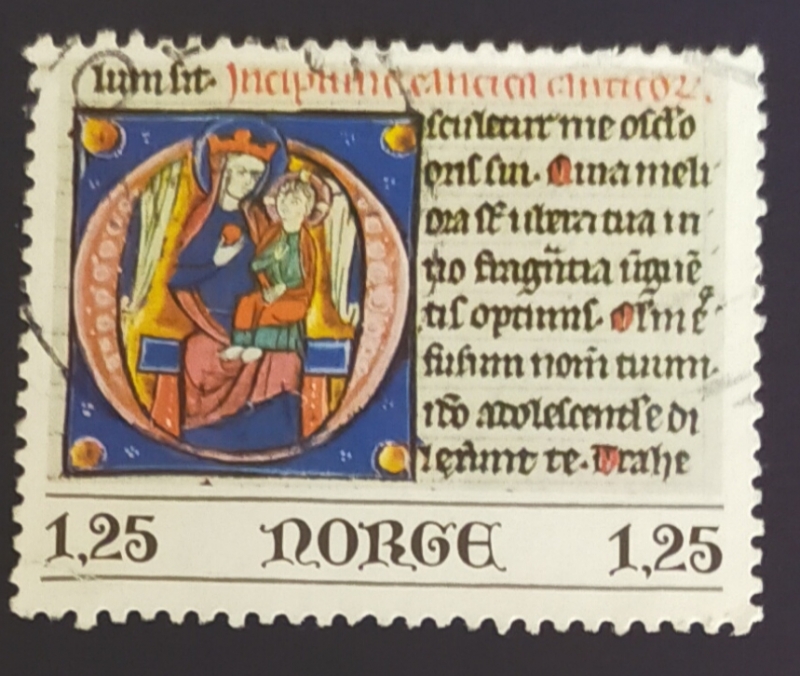 lum sit. Incipiunt cantica canticor.
sculetur me osclo
oris sui. Quia meli
ora st ubera tua in
no fragñtia ũguẽ
tis optimis. Olm e
fusum nom̃ tuum.
ĩõ adolescentule di
lexerunt te. Trahe
1,25 NORGE 1,25